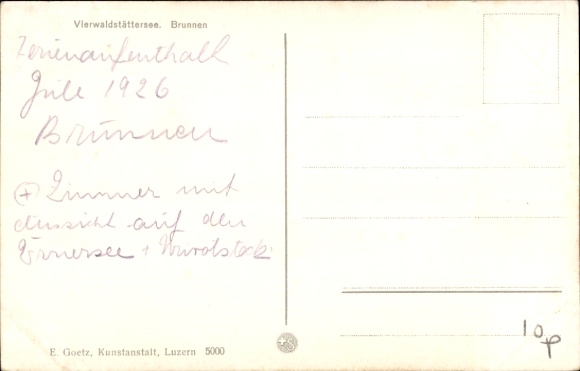 Vierwaldstättersee. Brunnen
Ferienaufenthalt
Juli 1926
Brunnen
(+) Zimmer mit
Aussicht auf den
Urnersee + Urirotstock
E. Goetz, Kunstanstalt, Luzern 5000
10